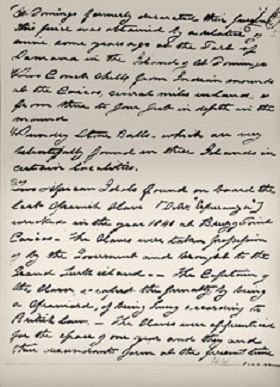 St Domingo formerly decorated their
This piece was obtained by a relative of
mine some years ago at the Fort of
Samana in the Island of St Domingo
Two Conch Shells from Indian mounds
at the Caicos, several miles inland, &
from three to four feet in depth in the
mounds
Sundry Stone Balls, which are very
plentifully found in these Islands in
certain localities.
Two African Idols found on board the
last Spanish Slaver
wrecked in the year 1841 at Breezy Point
Caicos. The slaves were taken possession
of by the Government and brought to the
Grand Turk island. — The Captain of
the slaver escaped the penalty by being
a Spaniard, of being hung according to
British Law. — The slaves were apprenticed
for the space of one year and they and
their descendants form at the present time